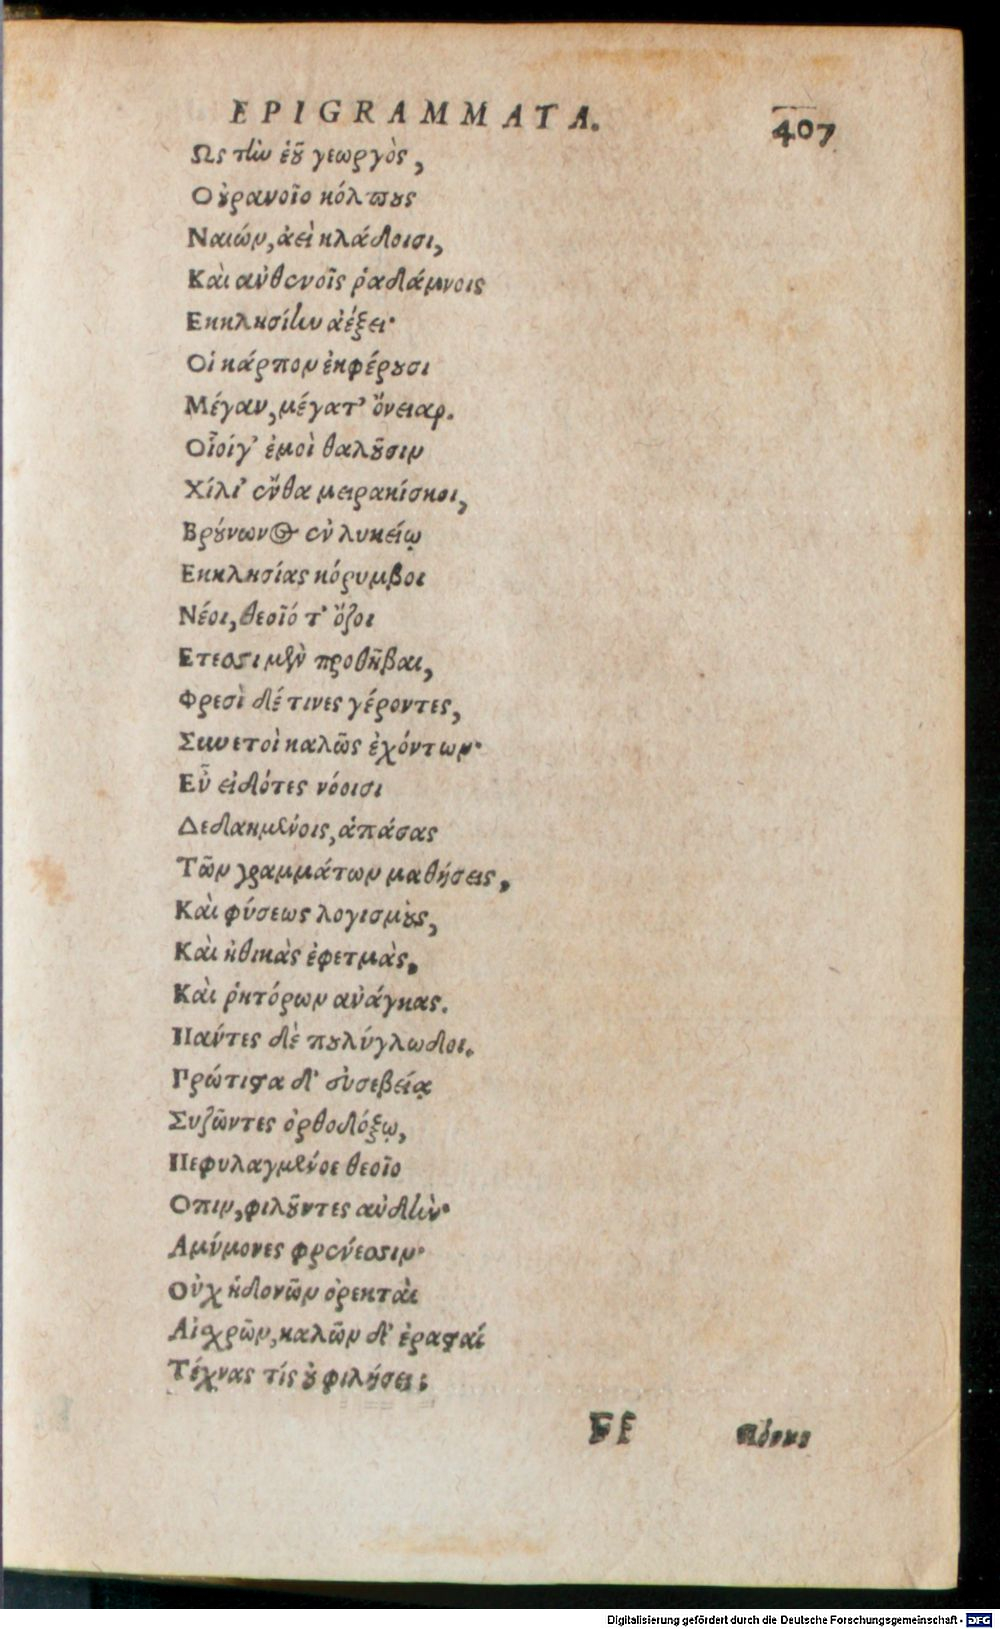 EPIGRAMMATA.
407
Ως τὴν ἑοῦ γεωργὸς,
Οὐρανοῖο κόλπους
Ναιών, ἀεὶ κλάδοισι,
Καὶ αὐθενοῖς ῥαδάμνοις
Εκκλησίην ἀέξει·
Οἱ κάρπον ἐκφέρουσι
Μέγαν, μέγατ' ὄνειαρ.
Οἷοίγ' ἐμοὶ θαλοῦσιν
Χίλι' ἔνθα μειρακίσκοι,
Βρούνωνος ἐν λυκείῳ
Εκκλησίας κόρυμβοι
Νέοι, θεοῖό τ' ὄζοι
Ετεσσι μὲν προθῆβαι,
Φρεσὶ δέ τινες γέροντες,
Συνετοὶ καλῶς ἐχόντων·
Εὖ εἰδότες νόοισι
Δεδακημένοις, ἁπάσας
Τῶν γραμμάτων μαθήσεις,
Καὶ φύσεως λογισμοὺς,
Καὶ ἠθικὰς ἐφετμὰς,
Καὶ ῥητόρων ἀνάγκας.
Πάντες δὲ πουλύγλωδοι.
Πρώτιστα δ' εὐσεβείᾳ
Συζῶντες ὀρθοδόξῳ,
Πεφυλαγμένοε θεοῖο
Οπιν, φιλοῦντες αὐδὴν·
Αμύμονες φρένεσσιν·
Οὐχ ἡδονῶν ὀρεκταὶ
Αἰσχρῶν, καλῶν δ' ἐρασταί
Τέχνας τίς οὐ φιλήσει;
Digitalisierung gefördert durch die Deutsche Forschungsgemeinschaft - DFG